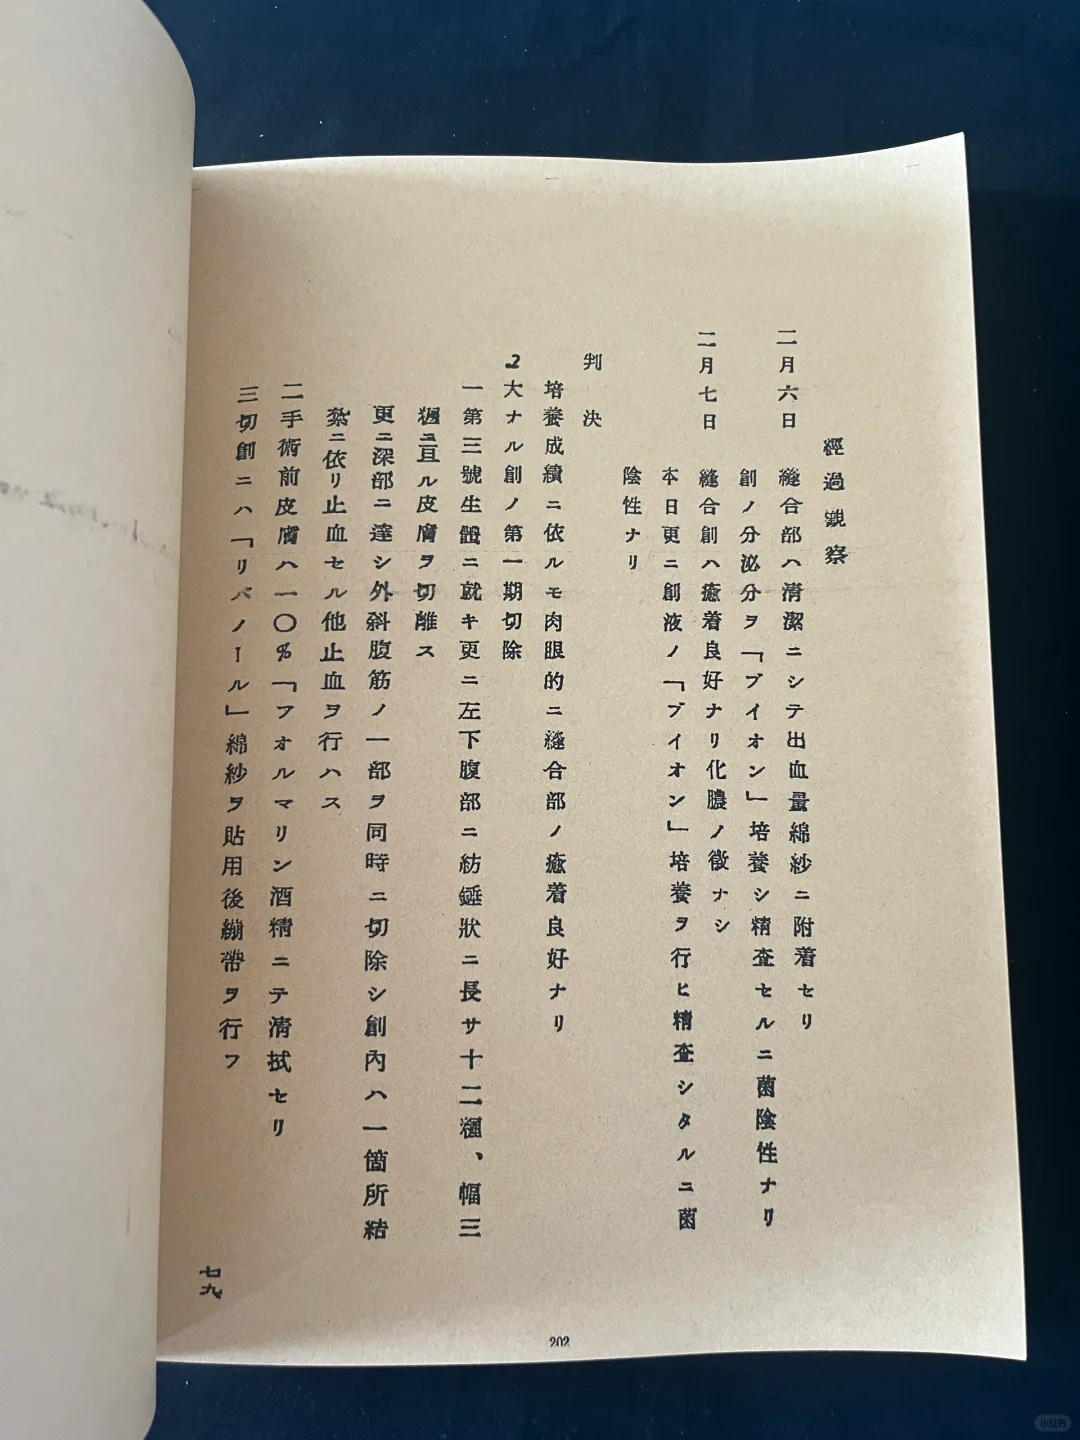 經過觀察
二月六日 縫合部ハ淸潔ニシテ出血量綿紗ニ附着セリ
創ノ分泌分ヲ「ブイオン」培養シ精査セルニ菌陰性ナリ
二月七日 縫合創ハ癒着良好ナリ化膿ノ徵ナシ
本日更ニ創液ノ「ブイオン」培養ヲ行ヒ精査シタルニ菌
陰性ナリ
判決
培養成績ニ依ルモ肉眼的ニ縫合部ノ癒着良好ナリ
2大ナル創ノ第一期切除
一第三號生體ニ就キ更ニ左下腹部ニ紡錘狀ニ長サ十二糎、幅三
糎ニ亘ル皮膚ヲ切離ス
更ニ深部ニ達シ外斜腹筋ノ一部ヲ同時ニ切除シ創內ハ一箇所結
紮ニ依リ止血セル他止血ヲ行ハス
二手術前皮膚ハ一〇%「フオルマリン酒精ニテ淸拭セリ
三切創ニハ「リバノール」綿紗ヲ貼用後繃帶ヲ行フ
七九
202
小红书